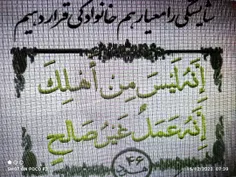 شایستگی را معیار هم خانوادگی قرار دهیم
إِنَّهُ لَيْسَ مِنْ أَهْلِكَ
إِنَّهُ عَمَلٌ غَيْرُ صَالِحٍ
هود ۴۶
SHOT ON POCO X3